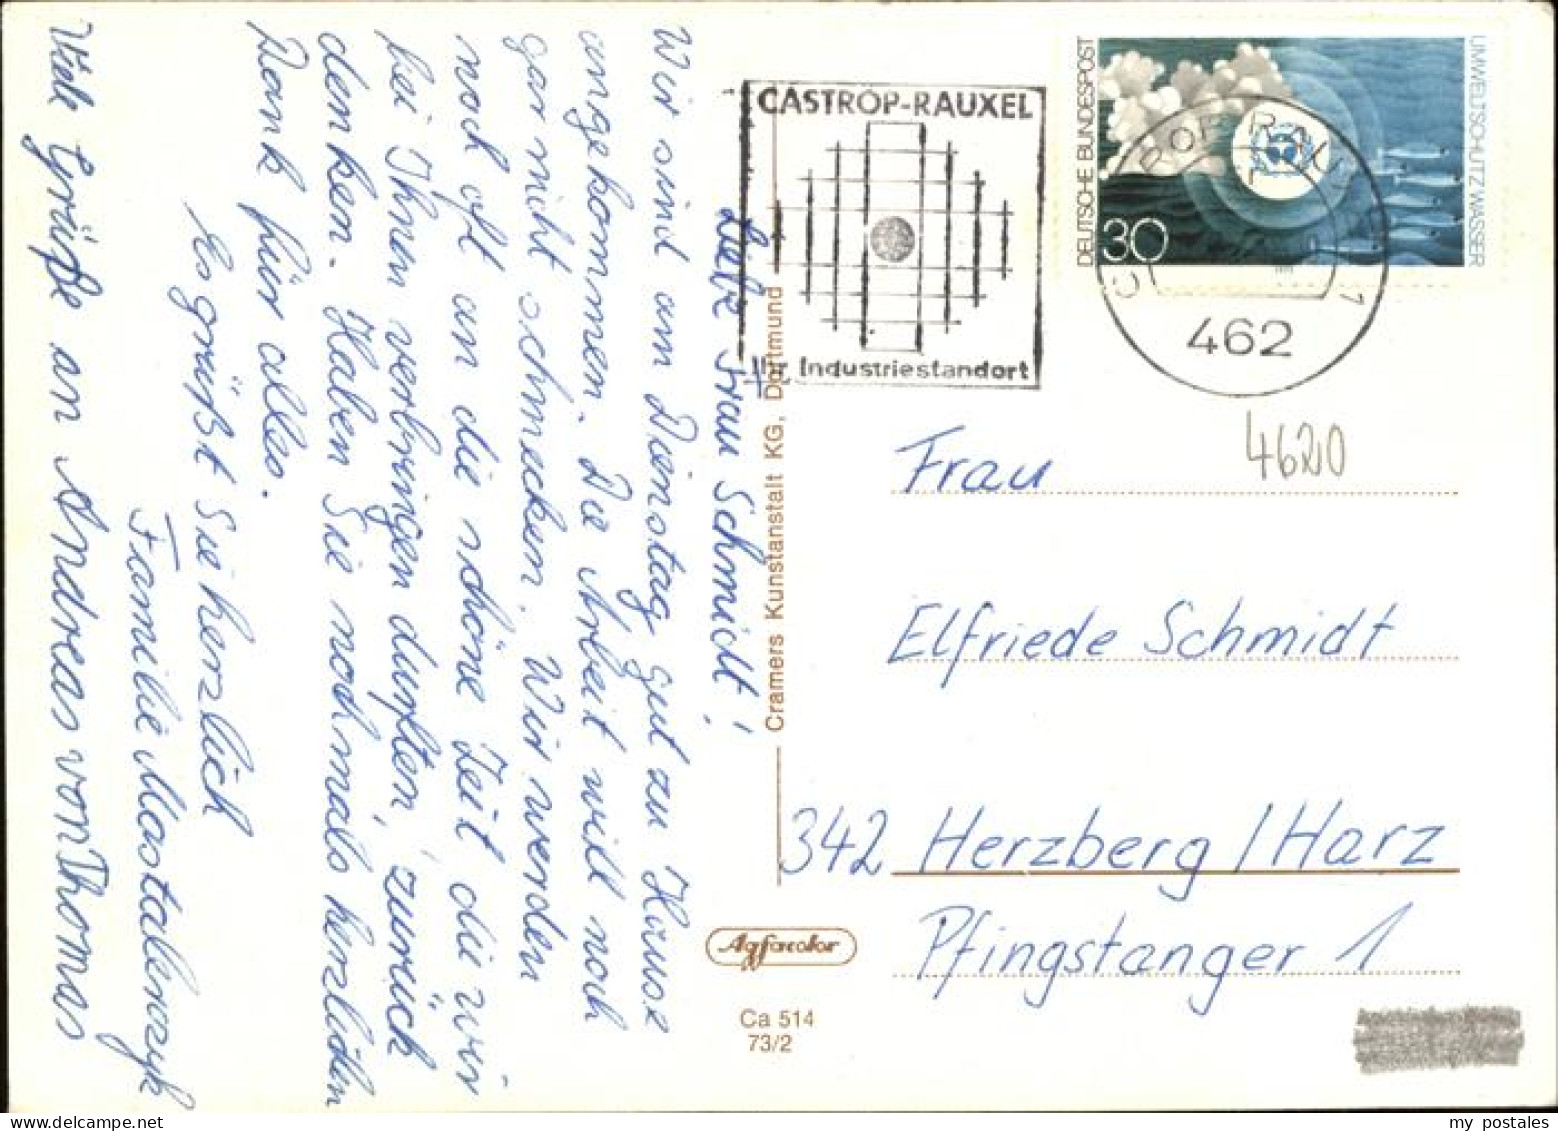 Liebe Frau Schmidt!
Wir sind am Dienstag gut zu Hause
angekommen. Die Arbeit will noch
gar nicht schmecken. Wir werden
noch oft an die schöne Zeit die wir
bei Ihnen verbringen durften, zurück
denken. Haben Sie nochmals herzlichen
Dank für alles.
Es grüßt Sie herzlich
Familie Mastalerczyk
Viele Grüße an Andreas von Thomas
CASTROP-RAUXEL
Ihr Industriestandort
DEUTSCHE BUNDESPOST
UMWELTSCHUTZ WASSER
30
CASTROP-RAUXEL 1
462
4620
Frau
Elfriede Schmidt
342 Herzberg/Harz
Pfingstanger 1
Cramers Kunstanstalt KG, Dortmund
Agfacolor
Ca 514
73/2
my postales